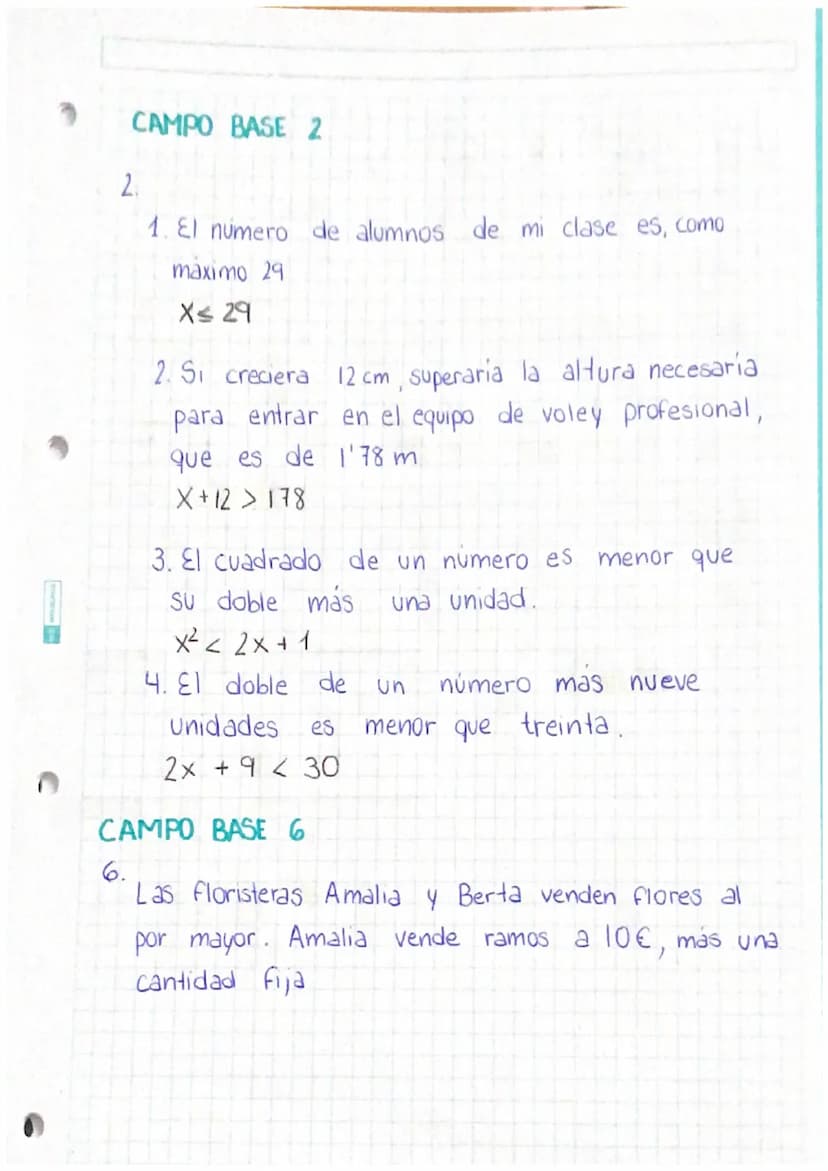 CAMPO BASE 2
2.
1. El número de alumnos de mi clase es, como
máximo 29
X≤ 29
2. Si creciera 12 cm, superaría la altura necesaria
para entrar en el equipo de voley profesional,
que es de 1'78 m
X+12 > 178
3. El cuadrado de un número es menor que
su doble más una unidad.
x² < 2x + 1
4. El doble de un número más nueve
unidades es menor que treinta.
2x + 9 < 30
CAMPO BASE 6
6.
Las floristeras Amalia y Berta venden flores al
por mayor. Amalia vende ramos a 10€, más una
cantidad fija